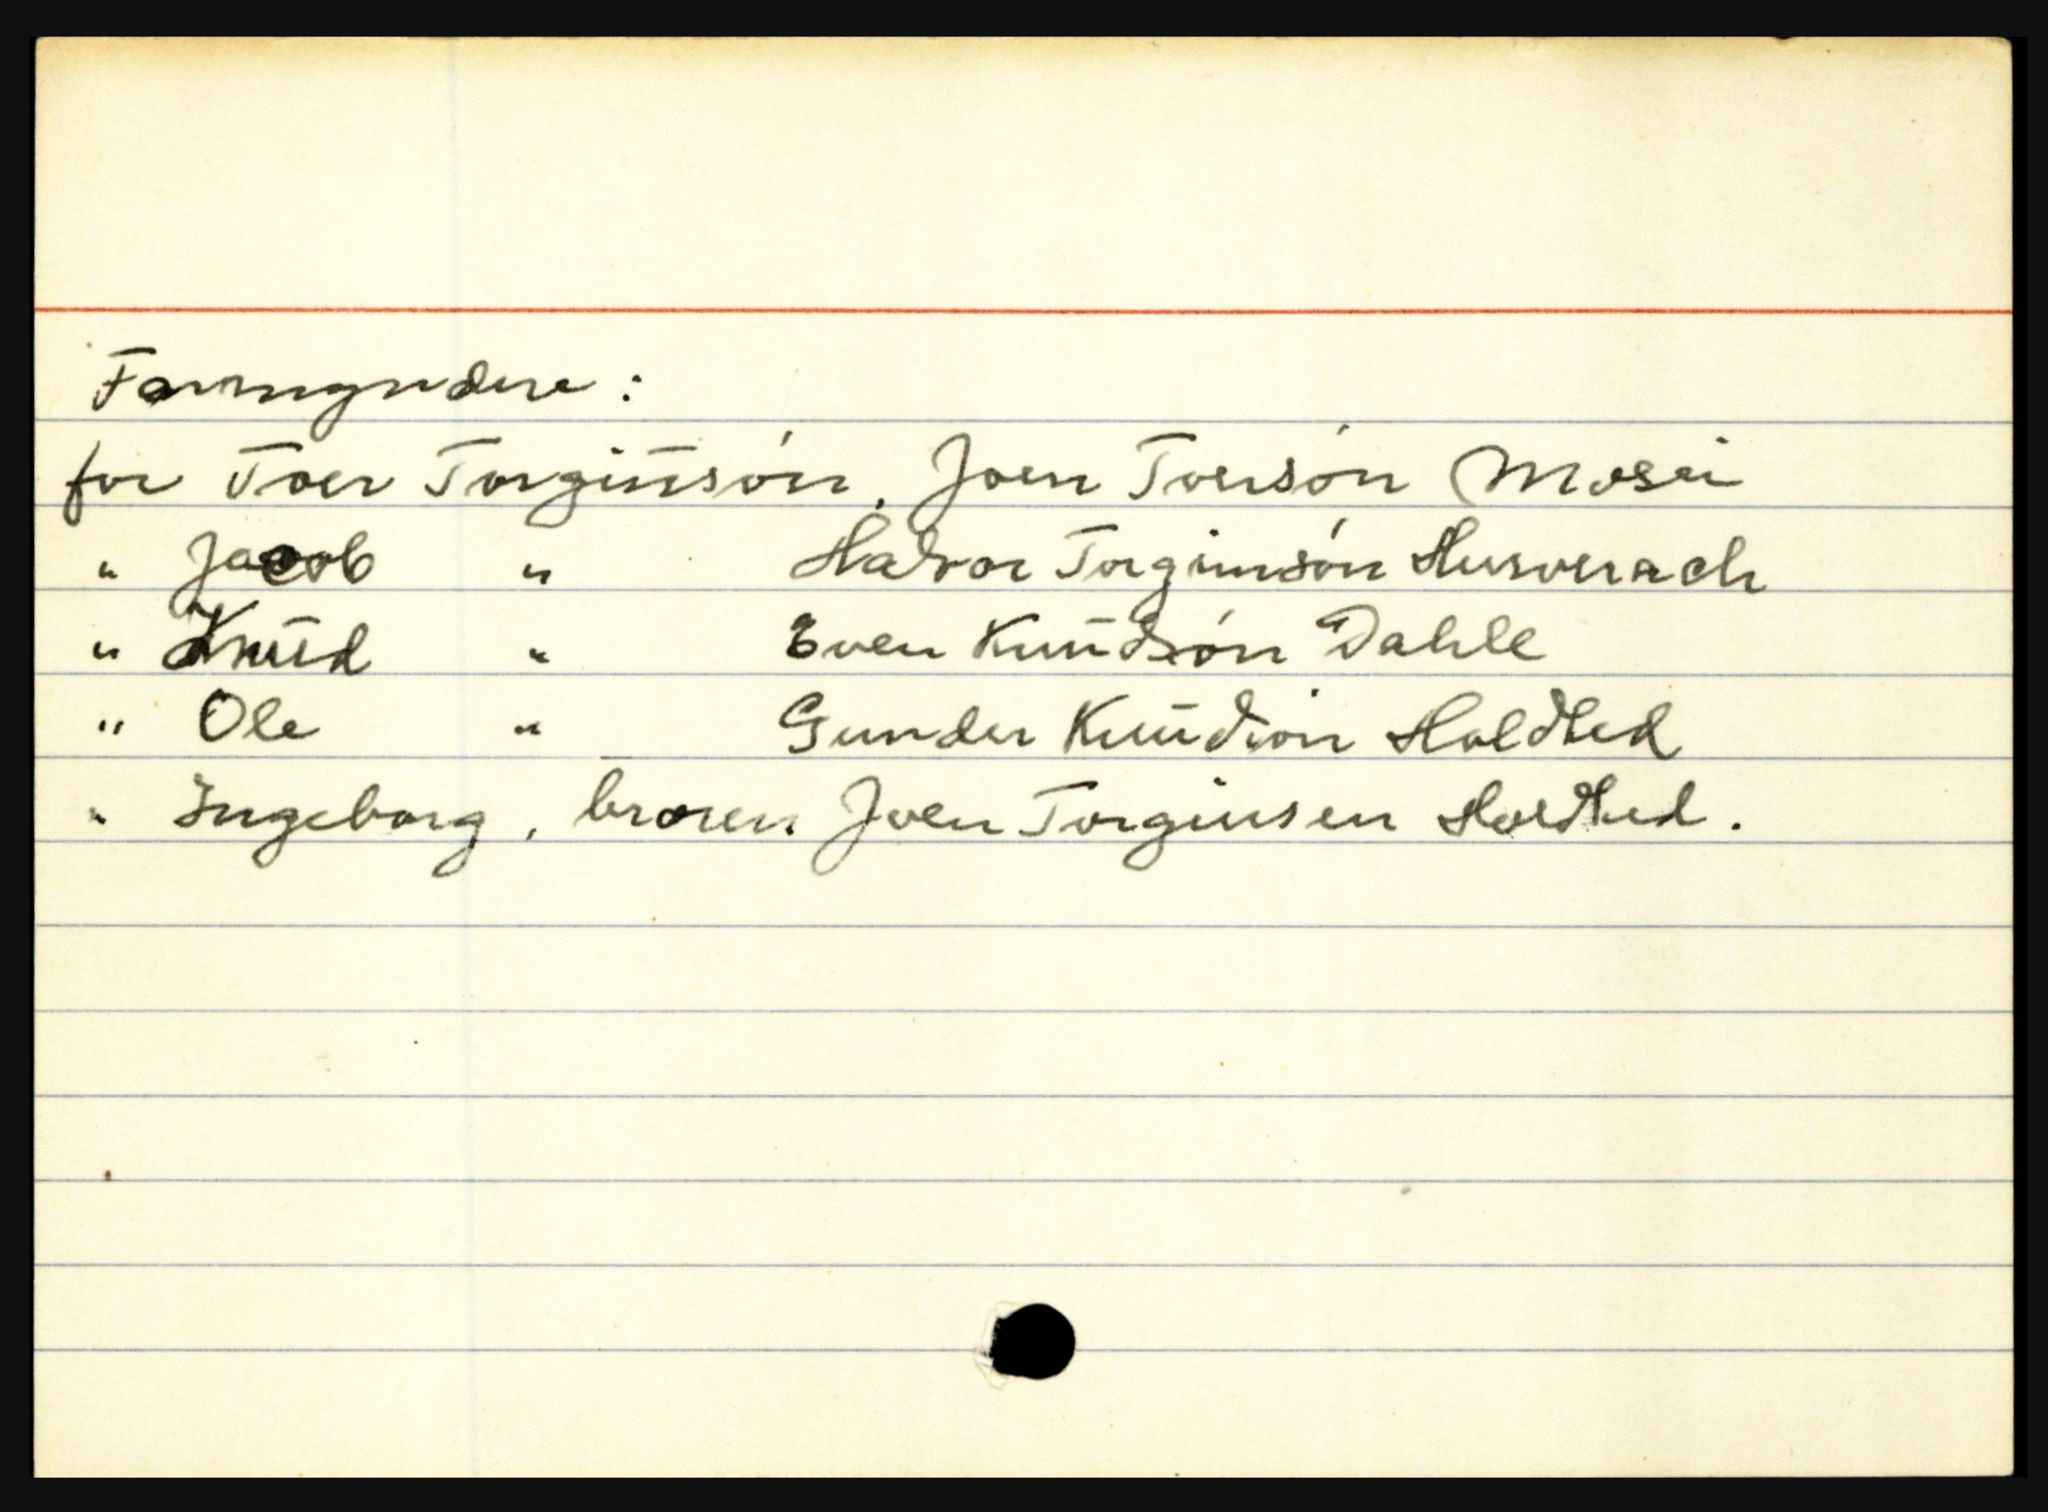 Formyndere:
for Toer Torginsón, Joen Toersón Mosei
" Jacob " Halvor Torgimsón Husverach
" Knud " Even Knudsón Dahle
" Ole " Gunder Knudsón Holdhed
" Ingeborg, broren Joen Torginsen Holdhed.